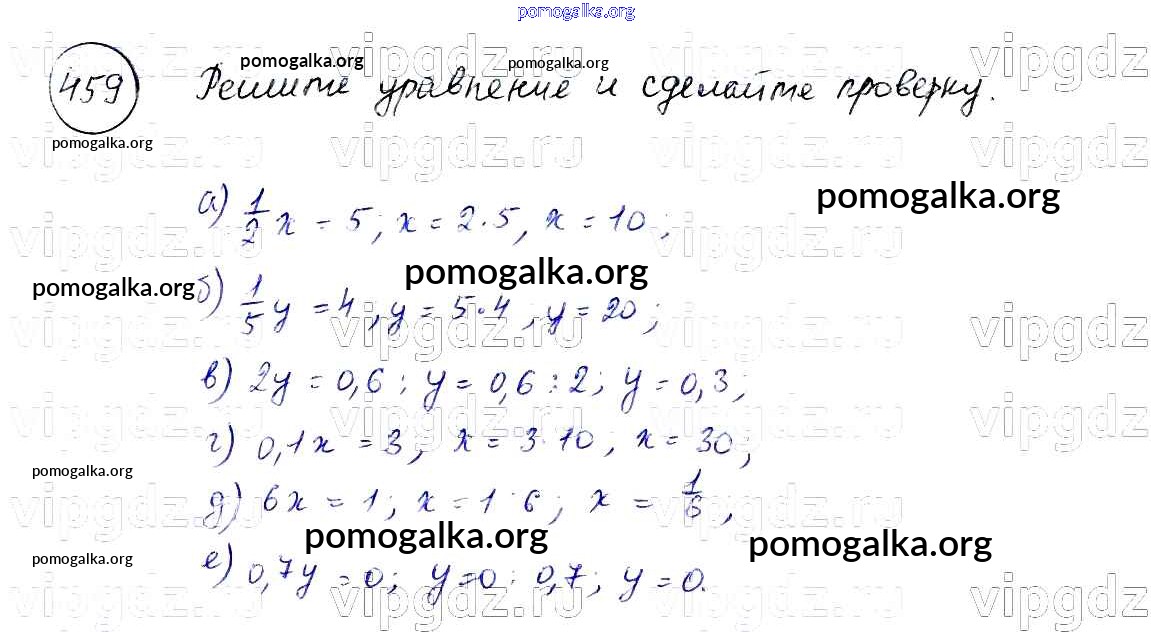 pomogalka.org
459 Решите уравнение и сделайте проверку.
pomogalka.org pomogalka.org
pomogalka.org
vipgdz.ru vipgdz.ru vipgdz.ru vipgdz
а) 1/2 x = 5; x = 2·5, x = 10;
pomogalka.org
б) 1/5 y = 4, y = 5·4; y = 20;
pomogalka.org pomogalka.org
в) 2y = 0,6; y = 0,6 : 2; y = 0,3;
г) 0,1x = 3, x = 3·10, x = 30;
pomogalka.org
д) 6x = 1; x = 1 : 6; x = 1/6;
pomogalka.org pomogalka.org
pomogalka.org
е) 0,7y = 0; y = 0 : 0,7; y = 0.